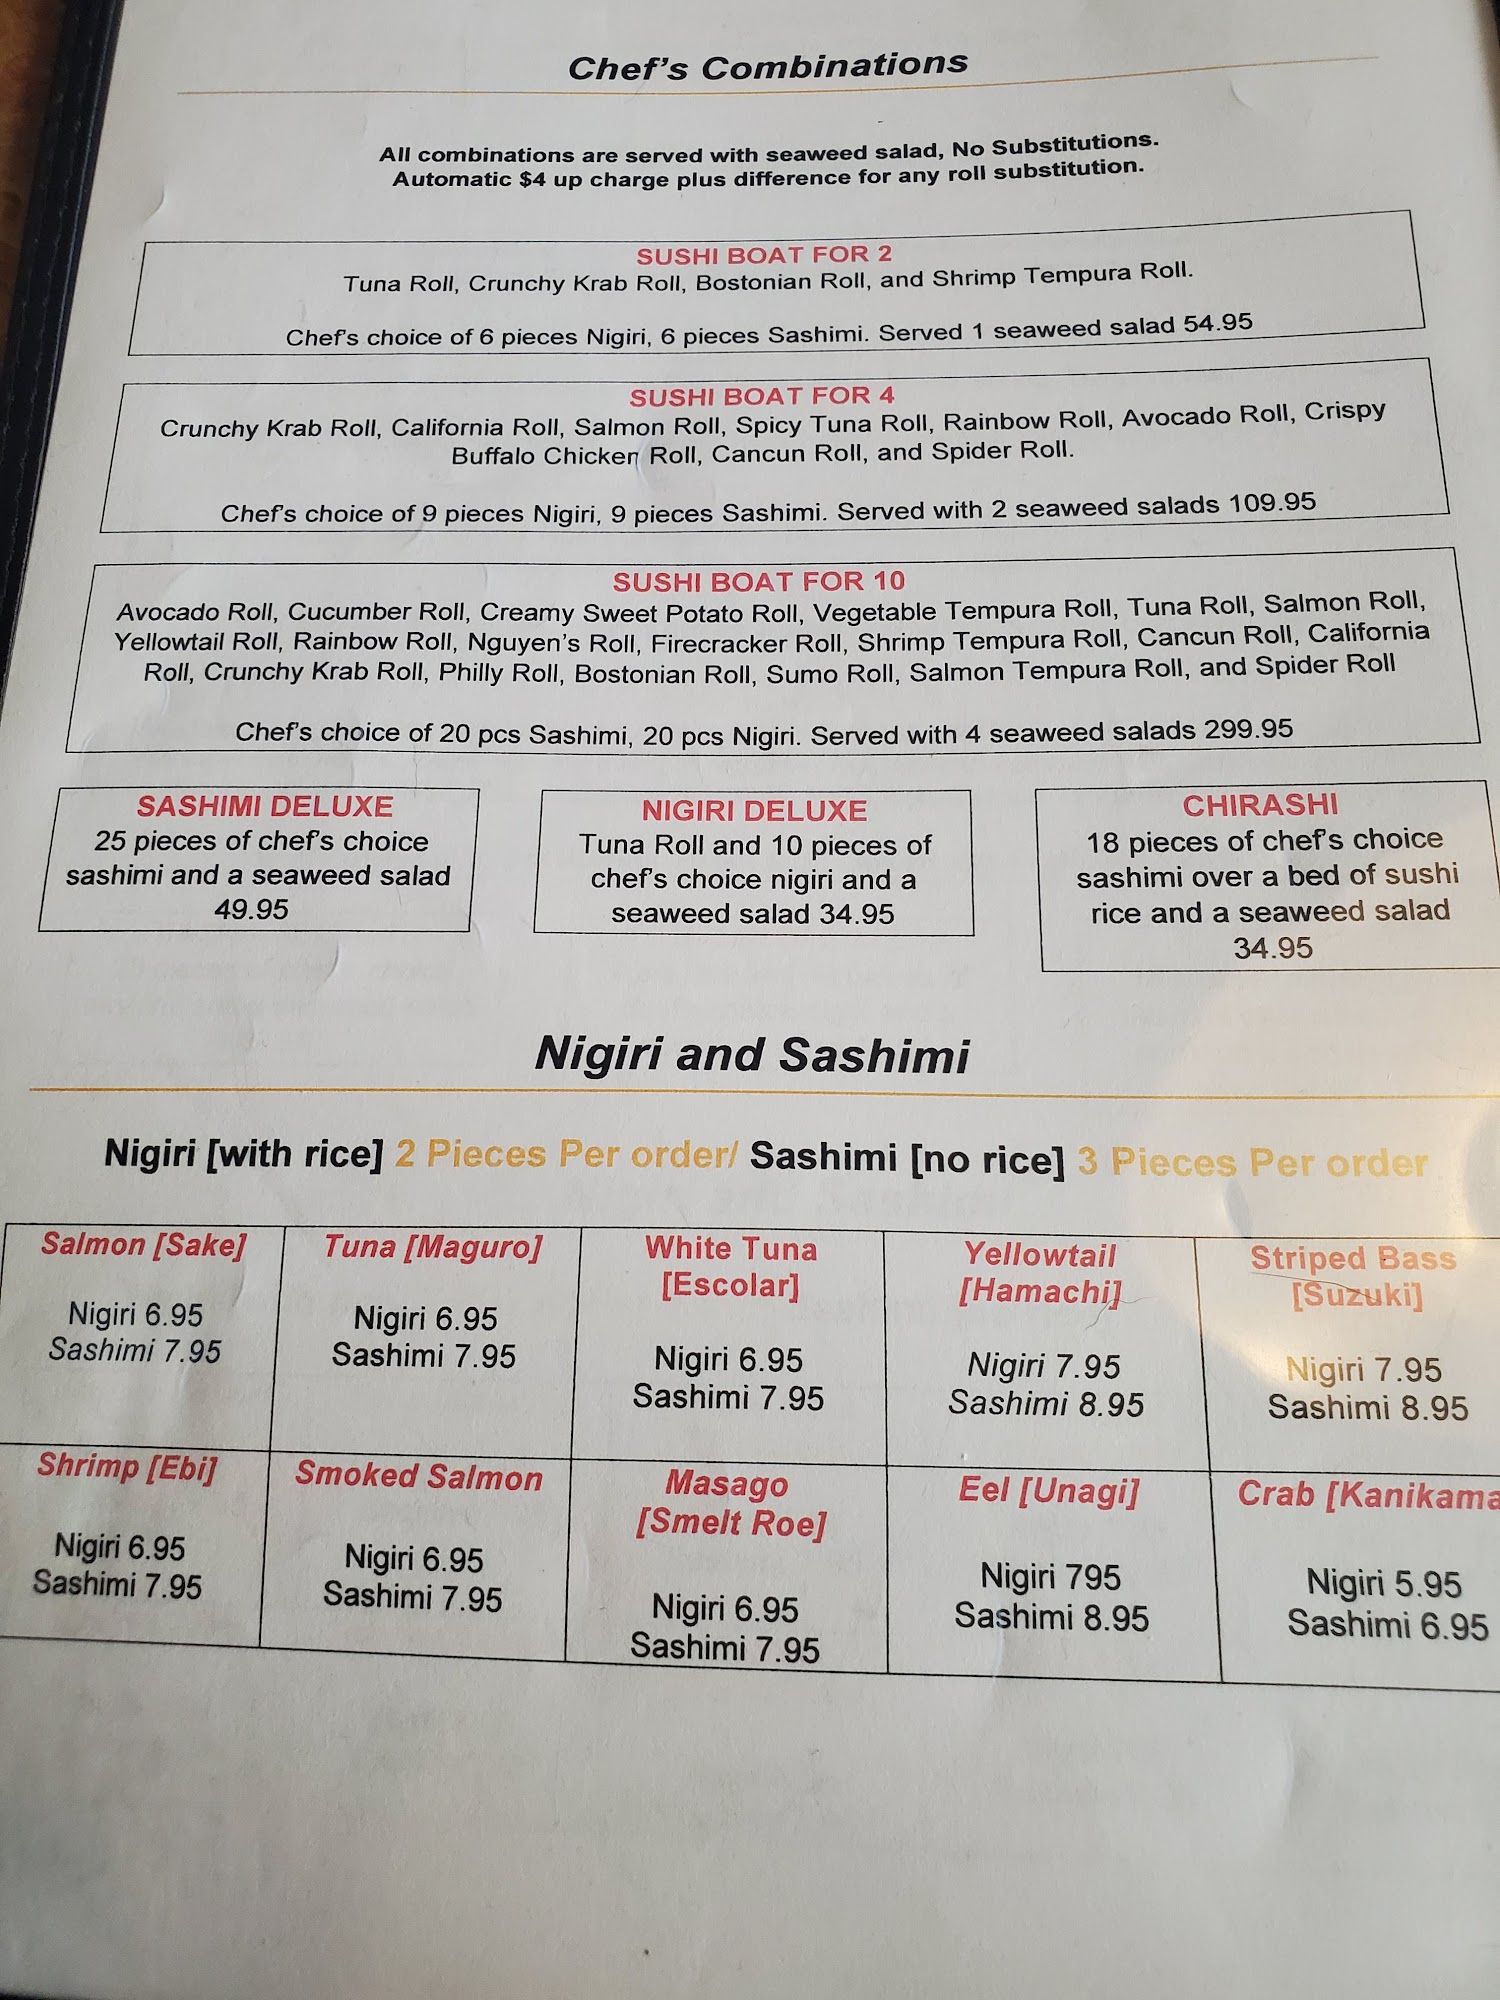 Chef's Combinations
All combinations are served with seaweed salad, No Substitutions.
Automatic $4 up charge plus difference for any roll substitution.
SUSHI BOAT FOR 2
Tuna Roll, Crunchy Krab Roll, Bostonian Roll, and Shrimp Tempura Roll.
Chef's choice of 6 pieces Nigiri, 6 pieces Sashimi. Served 1 seaweed salad 54.95
SUSHI BOAT FOR 4
Crunchy Krab Roll, California Roll, Salmon Roll, Spicy Tuna Roll, Rainbow Roll, Avocado Roll, Crispy
Buffalo Chicken Roll, Cancun Roll, and Spider Roll.
Chef's choice of 9 pieces Nigiri, 9 pieces Sashimi. Served with 2 seaweed salads 109.95
SUSHI BOAT FOR 10
Avocado Roll, Cucumber Roll, Creamy Sweet Potato Roll, Vegetable Tempura Roll, Tuna Roll, Salmon Roll,
Yellowtail Roll, Rainbow Roll, Nguyen's Roll, Firecracker Roll, Shrimp Tempura Roll, Cancun Roll, California
Roll, Crunchy Krab Roll, Philly Roll, Bostonian Roll, Sumo Roll, Salmon Tempura Roll, and Spider Roll
Chef's choice of 20 pcs Sashimi, 20 pcs Nigiri. Served with 4 seaweed salads 299.95
SASHIMI DELUXE
25 pieces of chef's choice
sashimi and a seaweed salad
49.95
NIGIRI DELUXE
Tuna Roll and 10 pieces of
chef's choice nigiri and a
seaweed salad 34.95
CHIRASHI
18 pieces of chef's choice
sashimi over a bed of sushi
rice and a seaweed salad
34.95
Nigiri and Sashimi
Nigiri [with rice] 2 Pieces Per order/ Sashimi [no rice] 3 Pieces Per order
Salmon [Sake]
Nigiri 6.95
Sashimi 7.95
Tuna [Maguro]
Nigiri 6.95
Sashimi 7.95
White Tuna
[Escolar]
Nigiri 6.95
Sashimi 7.95
Yellowtail
[Hamachi]
Nigiri 7.95
Sashimi 8.95
Striped Bass
[Suzuki]
Nigiri 7.95
Sashimi 8.95
Shrimp [Ebi]
Nigiri 6.95
Sashimi 7.95
Smoked Salmon
Nigiri 6.95
Sashimi 7.95
Masago
[Smelt Roe]
Nigiri 6.95
Sashimi 7.95
Eel [Unagi]
Nigiri 795
Sashimi 8.95
Crab [Kanikama
Nigiri 5.95
Sashimi 6.95